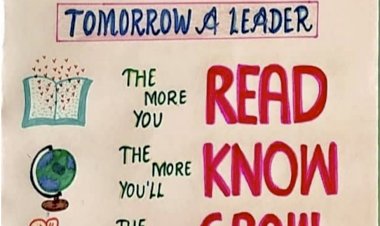 TOMORROW A LEADER
THE
MORE
YOU
READ
THE
MORE
YOU'LL
KNOW
THE
GROW